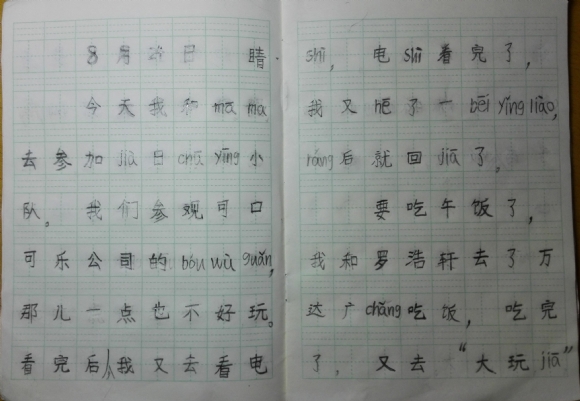 8月25日 晴
今天我和mā ma
去参加jiǎ日chū yīng小
队。我们参观可口
可乐公司的bóu wù guǎn,
那儿一点也不好玩。
看完后我又去看电
shì,电shì看完了,
我又hē了一bēi yǐng liào,
ráng后就回jiā了。
要吃午饭了,
我和罗浩轩去了万
达广chǎng吃饭,吃完
了,又去“大玩jiā”